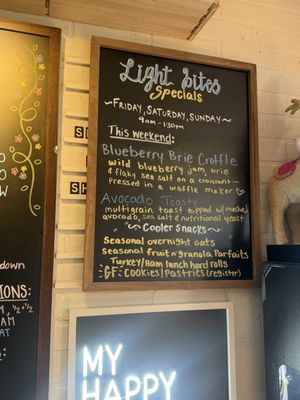 Light Bites
Specials
~Friday, Saturday, Sunday~
9am-1:30pm
This weekend:
Blueberry Brie Croffle
wild blueberry jam, brie
& flaky sea salt on a croissant
pressed in a waffle maker
Avocado Toasty
multigrain toast topped w/ mashed
avocado, sea salt & nutritional yeast
~Cooler Snacks~
Seasonal overnight oats
seasonal fruit n' granola Parfaits
Turkey/Ham lunch hard rolls
GF Cookies/Pastries (register)
MY
HAPPY
down